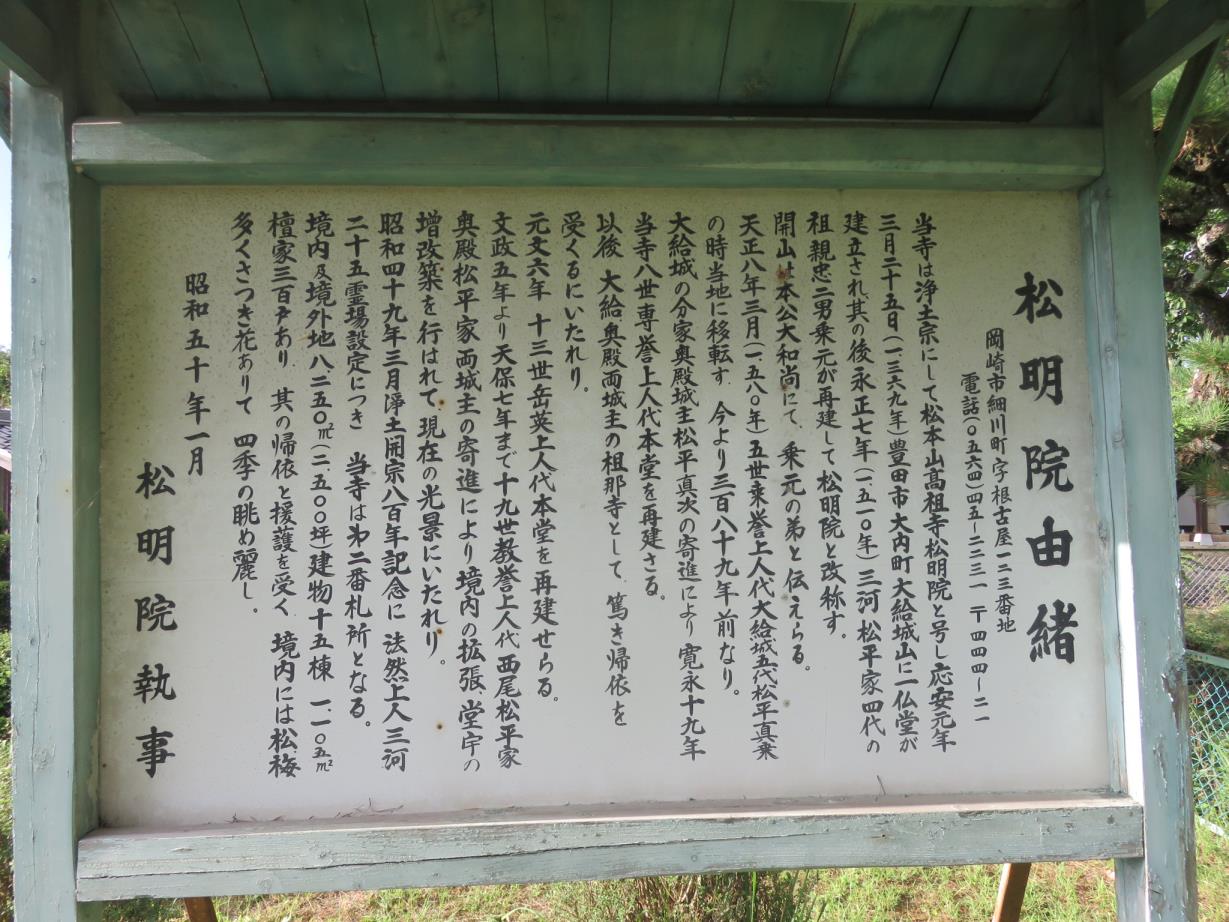 松明院由緒
岡崎市細川町字根古屋一二三番地
電話(〇五六四)四五-二三三一 〒四四四-二一
当寺は浄土宗にして松本山高祖寺松明院と号し応安元年
三月二十五日(一、三六九年)豊田市大内町大給城山に一仏堂が
建立され其の後永正七年(一、五一〇年)三河松平家四代の
祖親忠二男乗元が再建して松明院と改称す。
開山は本公大和尚にて、乗元の弟と伝えらる。
天正八年三月(一、五八〇年)五世乗誉上人代大給城五代松平真乗
の時当地に移転す、今より三百八十九年前なり。
大給城の分家奥殿城主松平真次の寄進により寛永十九年
当寺八世専誉上人代本堂を再建さる。
以後 大給奥殿両城主の祖那寺として、篤き帰依を
受くるにいたれり。
元文六年 十三世岳英上人代本堂を再建せらる。
文政五年より天保七年まで十九世教誉上人代 西尾松平家
奥殿松平家両城主の寄進により境内の拡張、堂宇の
増改築を行はれて、現在の光景にいたれり。
昭和四十九年三月浄土開宗八百年記念に 法然上人三河
二十五霊場設定につき 当寺は㐧二番札所となる。
境内及境外地八二五〇㎡(二、五〇〇坪)建物十五棟 一、一〇五㎡
檀家三百戸あり、其の帰依と援護を受く、境内には松、梅
多くさつき花ありて 四季の眺め麗し。
昭和五十年一月
松明院執事